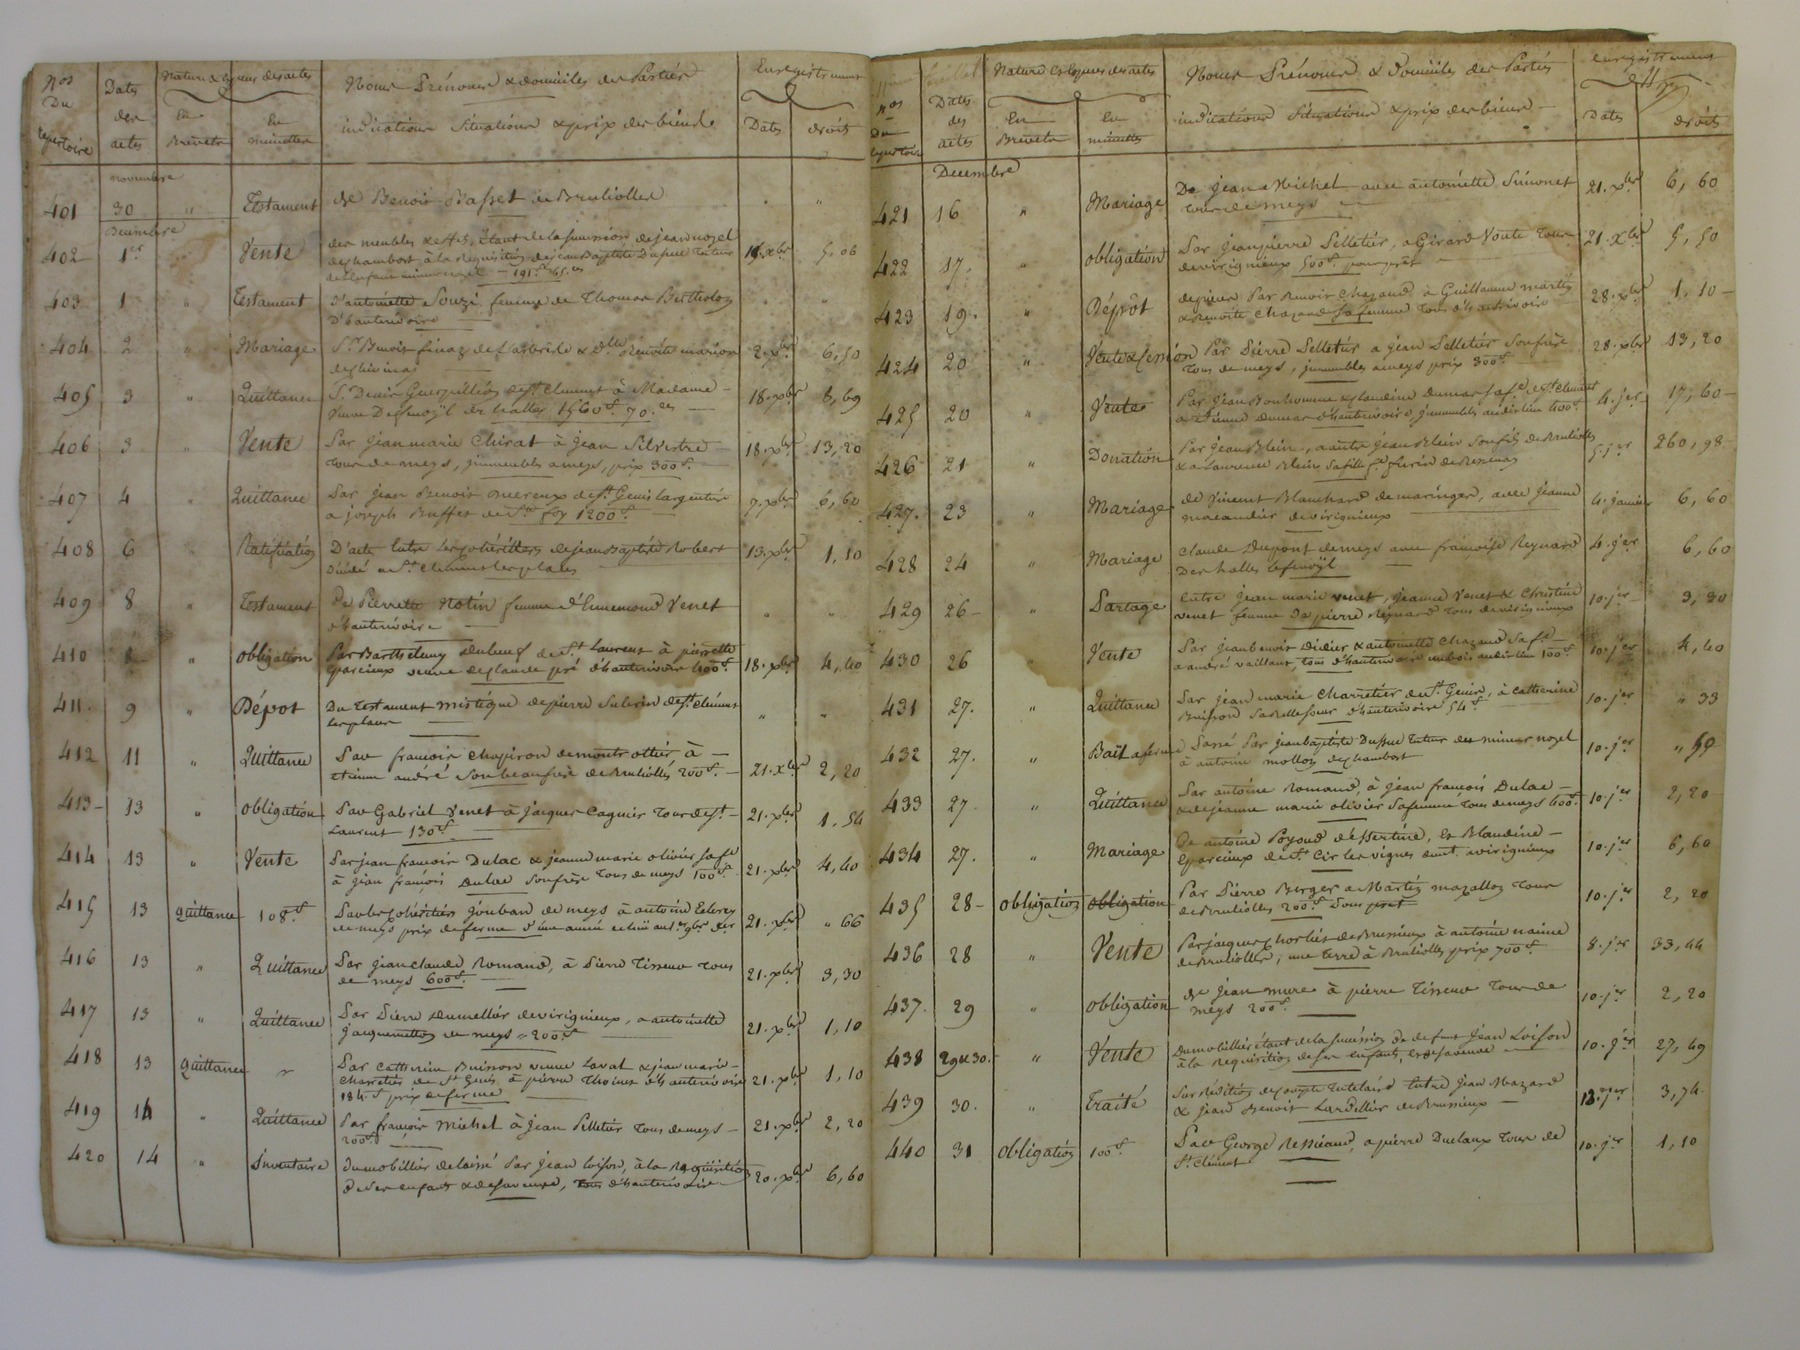 Nos Du Repertoire
Dates des actes
Nature & Espece des actes
En Brevets
En minuttes
Noms Prénoms & domiciles des Parties
indications situations & prix des biens
Enregistrement
Dates
droits
novembre
401 30 " Testament de Benoit Basset de Brullioles " "
Decembre
402 1er " Vente des meubles & effets, étant de la succession de jean nozel
de chambost, à la requisition de jean Baptiste Dupuis tuteur
191f 65c xbre 5,06
403 1 " Testament d'antoinette Souzi femme de Thomas Bertholon " "
D'hauterivoire
404 2 " Mariage Sr Benoit finaz de Larbresle & Dlle Benoite marion 2. xbre 6,50
405 3 " Quittance Sr Denis Guerpillion de St Clement à Madame 18. xbre 8,69
Veuve des halles 1560f 70c
406 3 " Vente Par jean marie Chirat à Jean Silvestre 18. xbre 13,20
tous de meys, immeubles a meys, prix 300f
407 4 " Quittance Par jean Benoit mereux de St Genis largentiere 7. xbre 6,60
a joseph Buffet de Ste foy 1200f
408 6 " Ratification D'acte Entre les cohéritiers de jean Baptiste Robert 13. xbre 1,10
Décédé a St Clement les places
409 8 " Testament De Pierrette Notin femme d'Ennemond Venet " "
d'hauterivoire
410 8 " obligation Par Barthelemy Dubeuf de St Laurent à pierrette 18. xbre 4,40
Eparcieux veuve de claude pré d'hauterivoire 400f
411 9 " Dépot Du testament mistique de pierre Sulerin de St clément " "
les places
412 11 " Quittance Par françois Chapiron demontrottier à 21. xbre 2,20
etienne andré son beaufrère de Brulliolles 200f
413 13 " obligation Par Gabriel Venet à jacques Cagnier tous de St 21. xbre 1,54
Laurent 130f
414 13 " Vente Par jean françois Dulac & jeanne marie olivier sa fe 21. xbre 4,40
à jean françois Dulac son frère tous de meys 100f
415 13 Quittance 108f Par les cohéritiers jouban de meys à antoine 21. xbre " 66
de meys prix de ferme d'une année 9bre der
416 13 " Quittance Par jean claude Romand, à Pierre Tisseur tous 21. xbre 3,30
de meys 600f
417 13 " Quittance Par Pierre Dumellier de virignieux, a antoinette 21. xbre 1,10
jacquemetton de meys 200f
418 13 Quittance " Par Catherine Buisson veuve Laval & jean marie 21. xbre 1,10
Charretier de St Genis, à pierre Thoinet d'hauterivoire
184f prix de ferme
419 14 " Quittance Par françois michel à jean Pelletier tous de meys 21. xbre 2,20
200f
420 14 " inventaire du mobillier delaissé Par jean loison, à la Requisition 20. xbre 6,60
de ses enfants & de sa veuve, tous d'hauterivoire
Nos Du Repertoire
Dates des actes
Nature & Especes des actes
En Brevets
En minuttes
Noms Prénoms & Domiciles des Parties
indications Situations & prix des biens
Enregistrement
Dates
droits
Decembre
421 16 " Mariage De jean Michel avec antoinette Simonet 21. xbre 6,60
tous de meys
422 17. " obligation Par jean pierre Pelletier, a Girard Voute tous 21. xbre 5,50
de virignieux 500f pour prêt
423 19. " Dépôt de pieces Par Benoit Chazaud à Guillaume martin 28. xbre 1,10
& Benoite Chazaud sa femme tous d'hauterivoire
424 20 " Vente & Cession Par Pierre Pelletier a jean Pelletier son frère 28. xbre 13,20
tous de meys, immeubles a meys prix 300f
425 20 " Vente Par jean Bonhomme & claudine dumas sa fe de St clément 4. jer 17,60
a Etienne dumas d'hauterivoire immeubles audit lieu 400f
426 21 " Donation Par jean Blein, a autre jean Blein son fils de Brulliolles 5. jer 260,98
& a Laurence Blein sa fille
427. 23 " Mariage de vincent Blanchard de maringes, avec jeanne 4. janvier 6,60
de virignieux
428 24 " Mariage Claude Dupont de meys avec françoise Reynard 4. jer 6,60
Des halles
429 26 " Partage Entre jean marie venet, jeanne Venet & Christine 10. jer 3,30
venet femme de pierre Reynard tous de virignieux
430 26 " Vente Par jean benoit Didier & antoinette Chazaud sa fe 10. jer 4,40
a andré vaillant, tous d'hauterivoire un bois audit lieu 100f
431 27. " Quittance Par jean marie Charretier de St Genis, à Catherine 10. jer " 33
Buisson sa Belle soeur d'hauterivoire 54f
432 27. " Bail a ferme Passé Par jean baptiste Dupuis tuteur des mineurs nozel 10. jer " 59
à antoine mollon de chambost
433 27 " Quittance Par antoine Romand, à jean françois Dulac 10. jer 2,20
& de jeanne marie olivier sa femme tous de meys 400f
434 27. " Mariage De antoine Poyoud d'essertine, & Blandine 10. jer 6,60
Eparcieux de St Cir les vignes dmt a virignieux
435 28 obligation obligation Par Pierre Berger a Martin mazallon tous 10. jer 2,20
de Brulliolles 200f Pour pret
436 28 " Vente Par jacques Chortier de Brussieux à antoine naime 8. jer 33,44
de Brulliolles, une terre à Brulliolles prix 700f
437. 29 " obligation De jean mure à pierre Tisseur tous de 10. jer 2,20
meys 200f
438 29 & 30. " Vente Du mobillier étant de la succession de defunt jean Loison 10. jer 27,69
à la Requisition de ses enfants, & de sa veuve
439 30. " Traité Sur Reddition de compte tutelaire Entre jean Mazard 12. jer 3,74
& jean Benoit Lardellier de Brussieux
440 31 obligation 100f Par George Ressicaud, a pierre Duclaux tous de 10. jer 1,10
St Clément